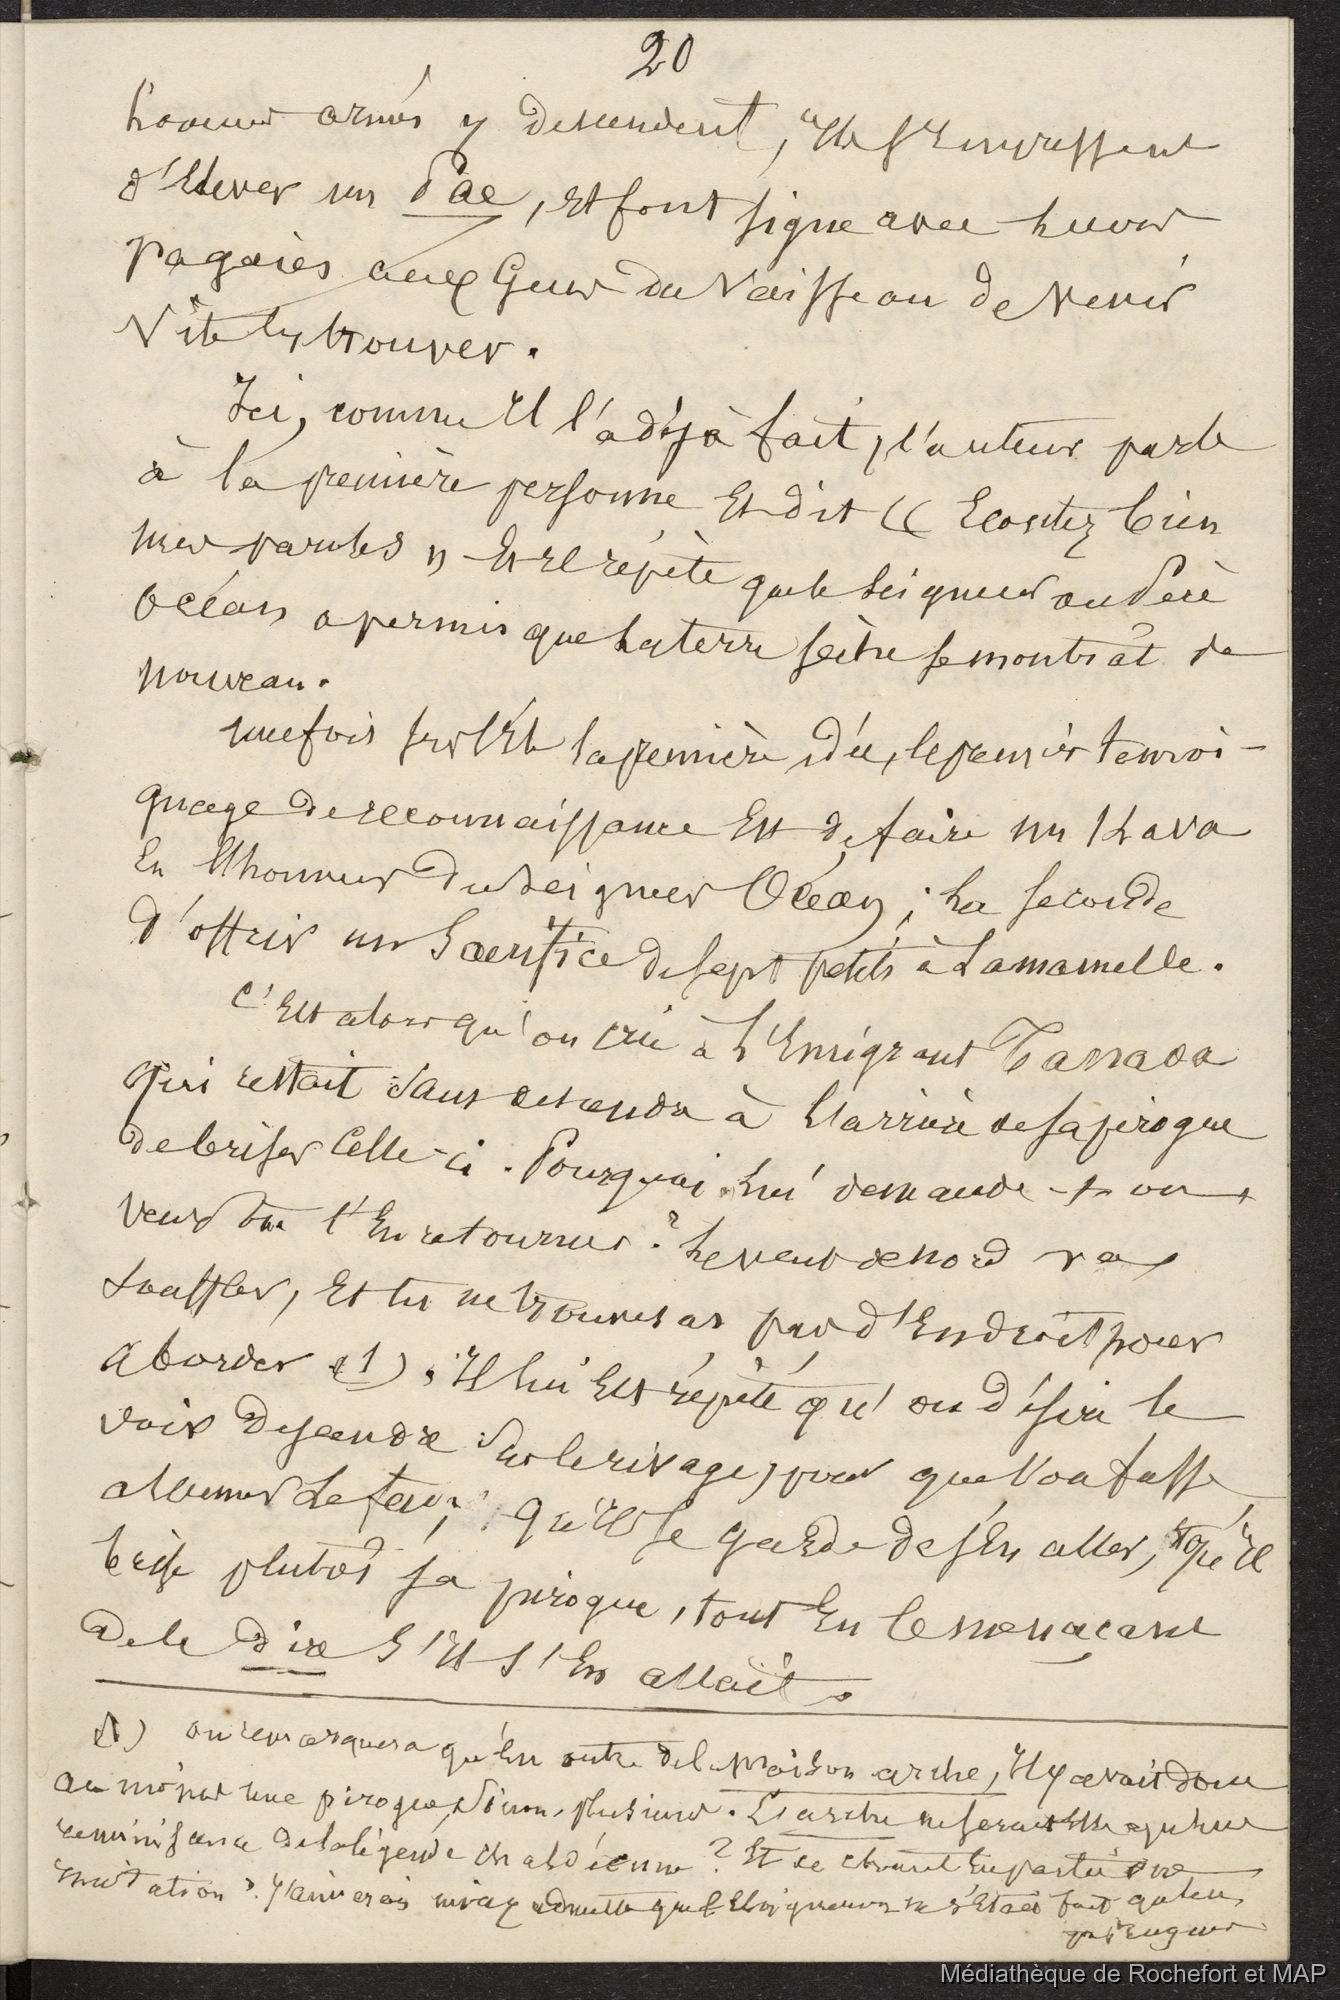 20
hommes armés y descendent, ils s'empressent
d'élever un Pae, et font signe avec leurs
pagaies aux gens du vaisseau de venir
vite les trouver.
Ici, comme il l'a déjà fait, l'auteur parle
à la première personne et dit « Ecoutez bien
mes paroles » et il répète que le seigneur ou Père
océan a permis que la terre sèche se montrât de
nouveau.
une fois sur l'île la première idée, le premier témoi-
gnage de reconnaissance est de faire un Kava
en l'honneur du seigneur Océan ; la seconde
d'offrir un sacrifice de sept petits à la mamelle.
C'est alors qu'on crie à l'Emigrant Tanaoa
qui restait sans descendre à l'arrière de sa pirogue
de briser celle-ci. Pourquoi lui demande-t-on
veux tu t'en retourner ? le vent de nord va
souffler, et tu ne trouveras pas d'endroit pour
aborder (1). Il lui est répété qu'on désire le
voir descendre sur le rivage, pour que l'on fasse
allumer le feu ; qu'il se garde de s'en aller, et qu'il
brise plutôt sa pirogue, tout en le menaçant
de le dire s'il s'en allait.
(1) on remarquera qu'en outre de la maison arche, il y avait donc
au moins une pirogue, sinon plusieurs. L'arche ne serait elle qu'une
reminiscence de la légende chaldéenne ? Et le chant en partie une
imitation ? J'aimerais mieux admettre que l'éloignement ne s'était fait qu'en